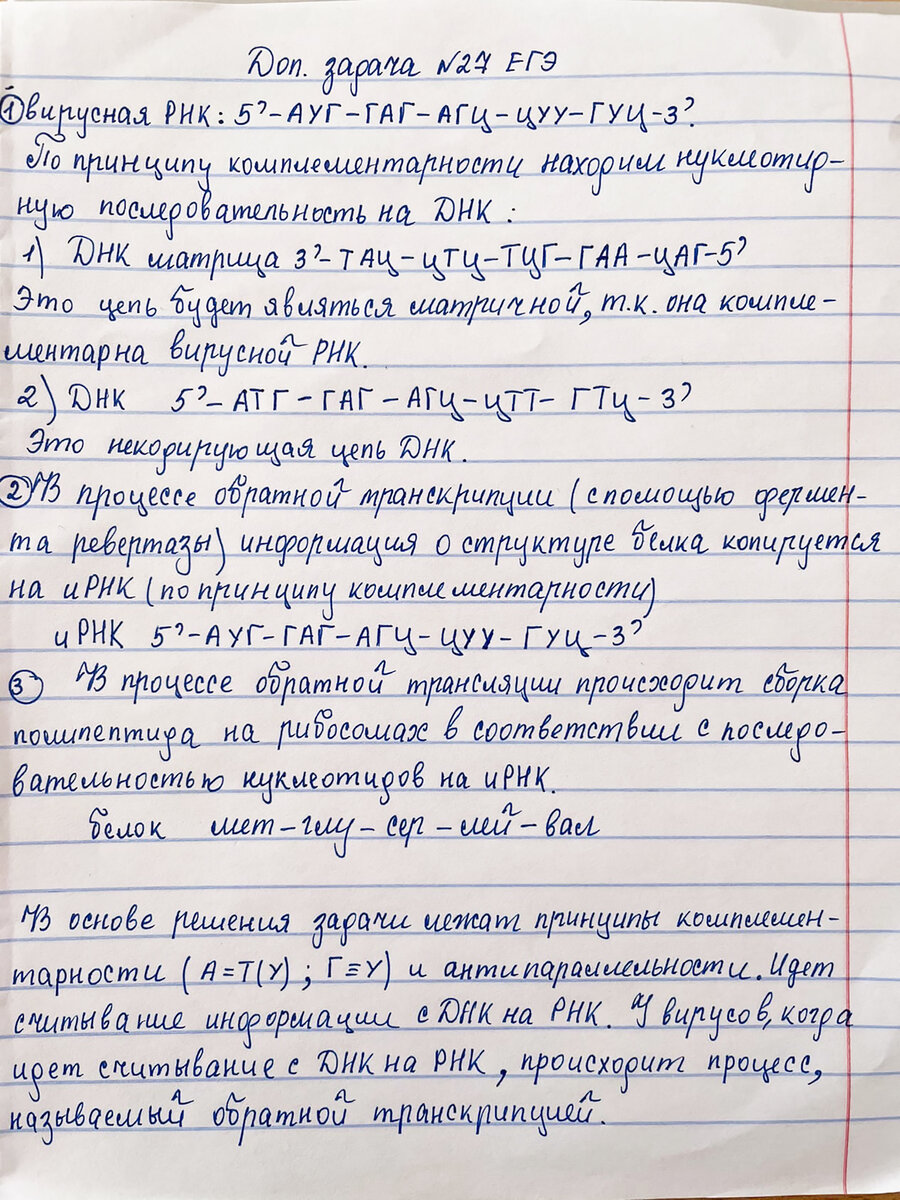 Доп. задача №27 ЕГЭ
① вирусная РНК: 5’-АУГ-ГАГ-АГЦ-ЦУУ-ГУЦ-3’.
По принципу комплементарности находим нуклеотид-
ную последовательность на ДНК:
1) ДНК матрица 3’-ТАЦ-ЦТЦ-ТЦГ-ГАА-ЦАГ-5’
Это цепь будет являться матричной, т.к. она компле-
ментарна вирусной РНК.
2) ДНК 5’-АТГ-ГАГ-АГЦ-ЦТТ-ГТЦ-3’
Это некодирующая цепь ДНК.
② В процессе обратной транскрипции (с помощью фермен-
та ревертазы) информация о структуре белка копируется
на иРНК (по принципу комплементарности)
иРНК 5’-АУГ-ГАГ-АГЦ-ЦУУ-ГУЦ-3’
③ В процессе обратной трансляции происходит сборка
полипептида на рибосомах в соответствии с последо-
вательностью нуклеотидов на иРНК.
белок мет-глу-сер-лей-вал
В основе решения задачи лежат принципы комплемен-
тарности (А=Т(У); Г≡У) и антипараллельности. Идет
считывание информации с ДНК на РНК. У вирусов, когда
идет считывание с ДНК на РНК, происходит процесс,
называемый обратной транскрипцией.